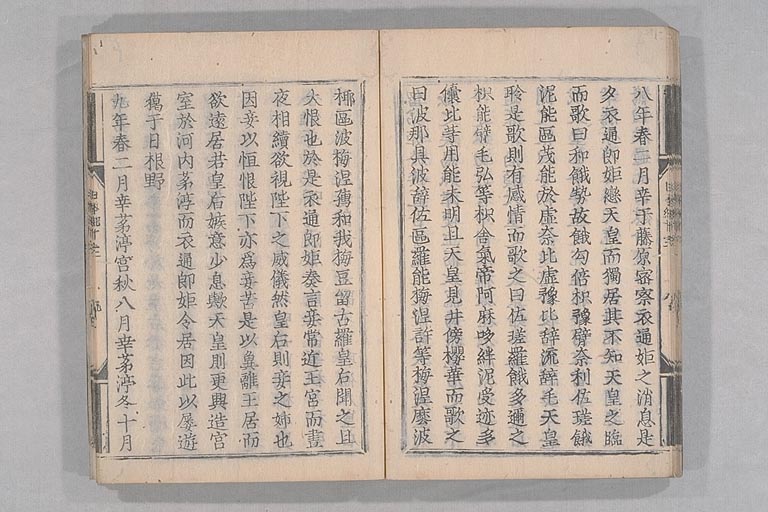 八年春二月幸于藤原密察衣通郎姫之消息是
夕衣通郎姫戀天皇而獨居其不知天皇之臨
而歌曰和餓勢故餓勾倍枳豫臂奈利佐瑳餓
泥能區茂能於虛奈比虛豫比辭流辭毛天皇
聆是歌則有感情而歌之曰佐瑳羅餓多邇之
枳能臂毛弘等枳舍氣帝阿麻哆絆泥受迹多
儾比等用能未明旦天皇見井傍櫻華而歌之
曰波那具波辭佐區羅能梅涅許等梅涅麼波
椰區波梅涅孺和我梅豆留古羅皇后聞之且
大恨也於是衣通郎姫奏言妾常近王宮而晝
夜相續欲視陛下之威儀然皇后則妾之姉也
因妾以恒恨陛下亦爲妾苦是以冀離王居而
欲遠居若皇后嫉意少息歟天皇則更興造宮
室於河内茅渟而衣通郎姫令居因此以屡遊
獦于日根野
九年春二月幸茅渟宮秋八月幸茅渟冬十月